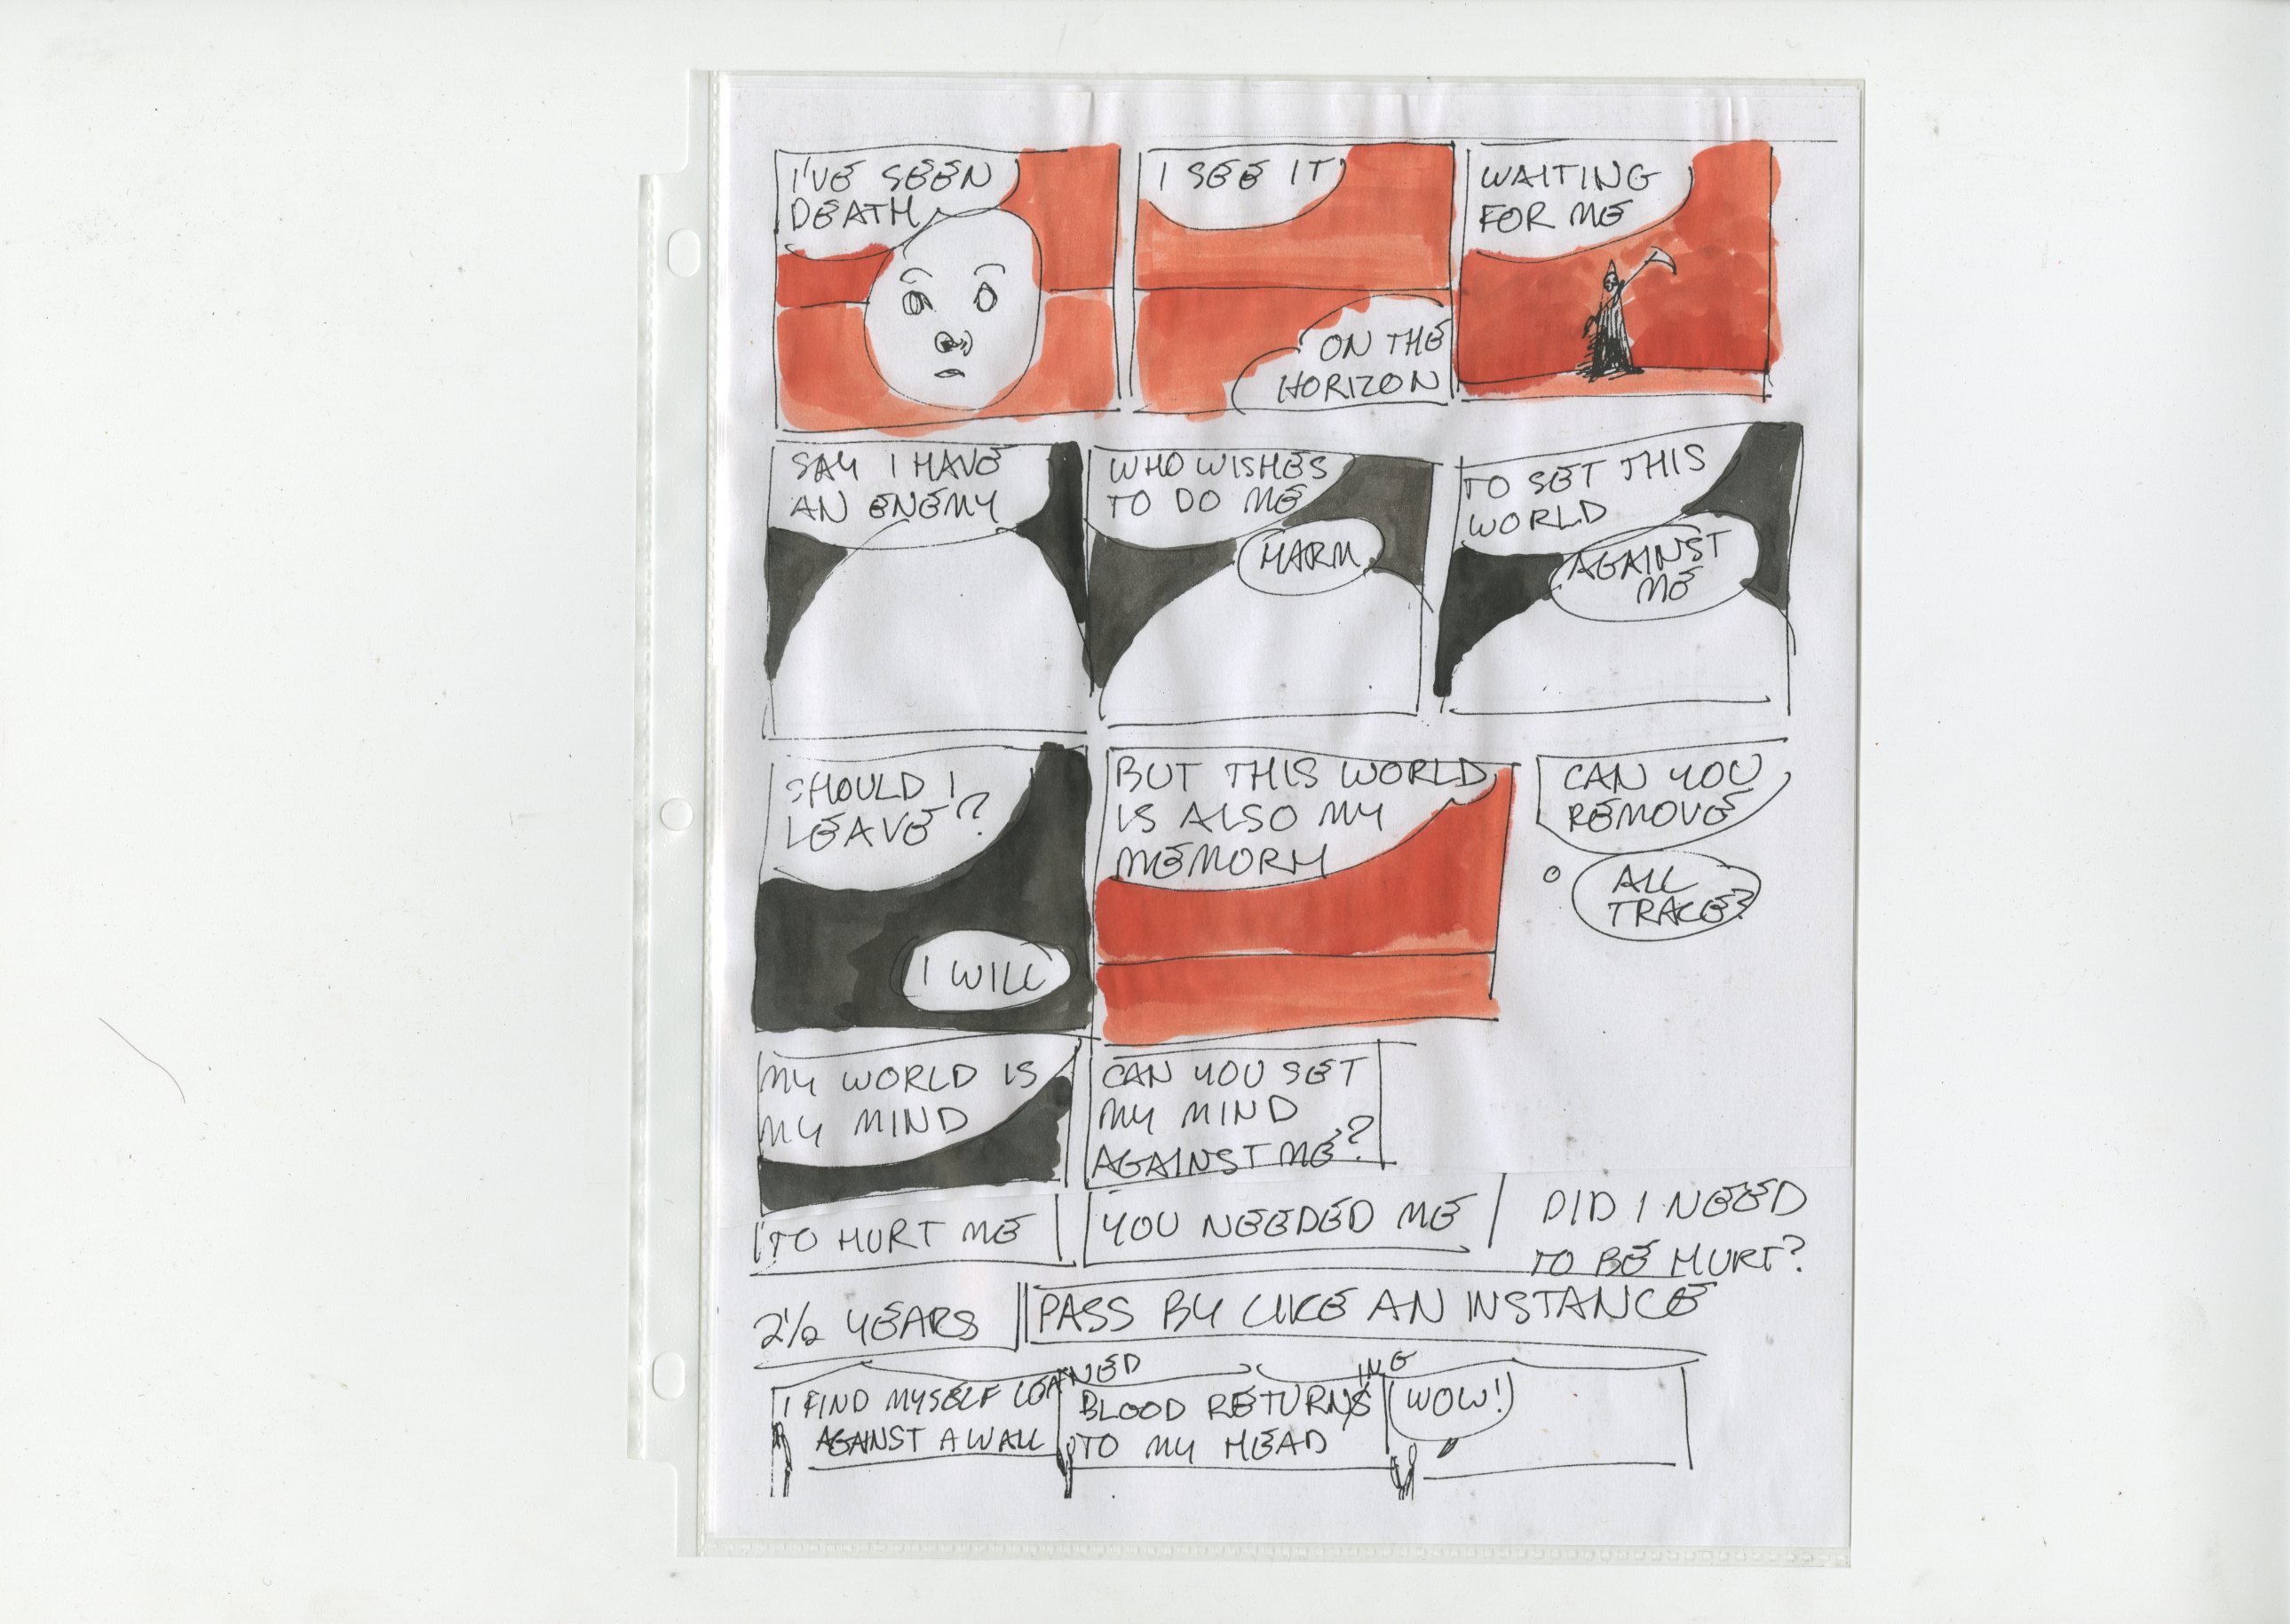 I'VE SEEN
DEATH
I SEE IT
ON THE
HORIZON
WAITING
FOR ME
SAY I HAVE
AN ENEMY
WHO WISHES
TO DO ME
HARM
TO SET THIS
WORLD
AGAINST
ME
SHOULD I
LEAVE?
I WILL
BUT THIS WORLD
IS ALSO MY
MEMORY
CAN YOU
REMOVE
ALL
TRACE?
MY WORLD IS
MY MIND
CAN YOU SET
MY MIND
AGAINST ME?
TO HURT ME
YOU NEEDED ME
DID I NEED
TO BE HURT?
2 1/2 YEARS
PASS BY LIKE AN INSTANCE
I FIND MYSELF LEANED
AGAINST A WALL
BLOOD RETURNING
TO MY HEAD
WOW!